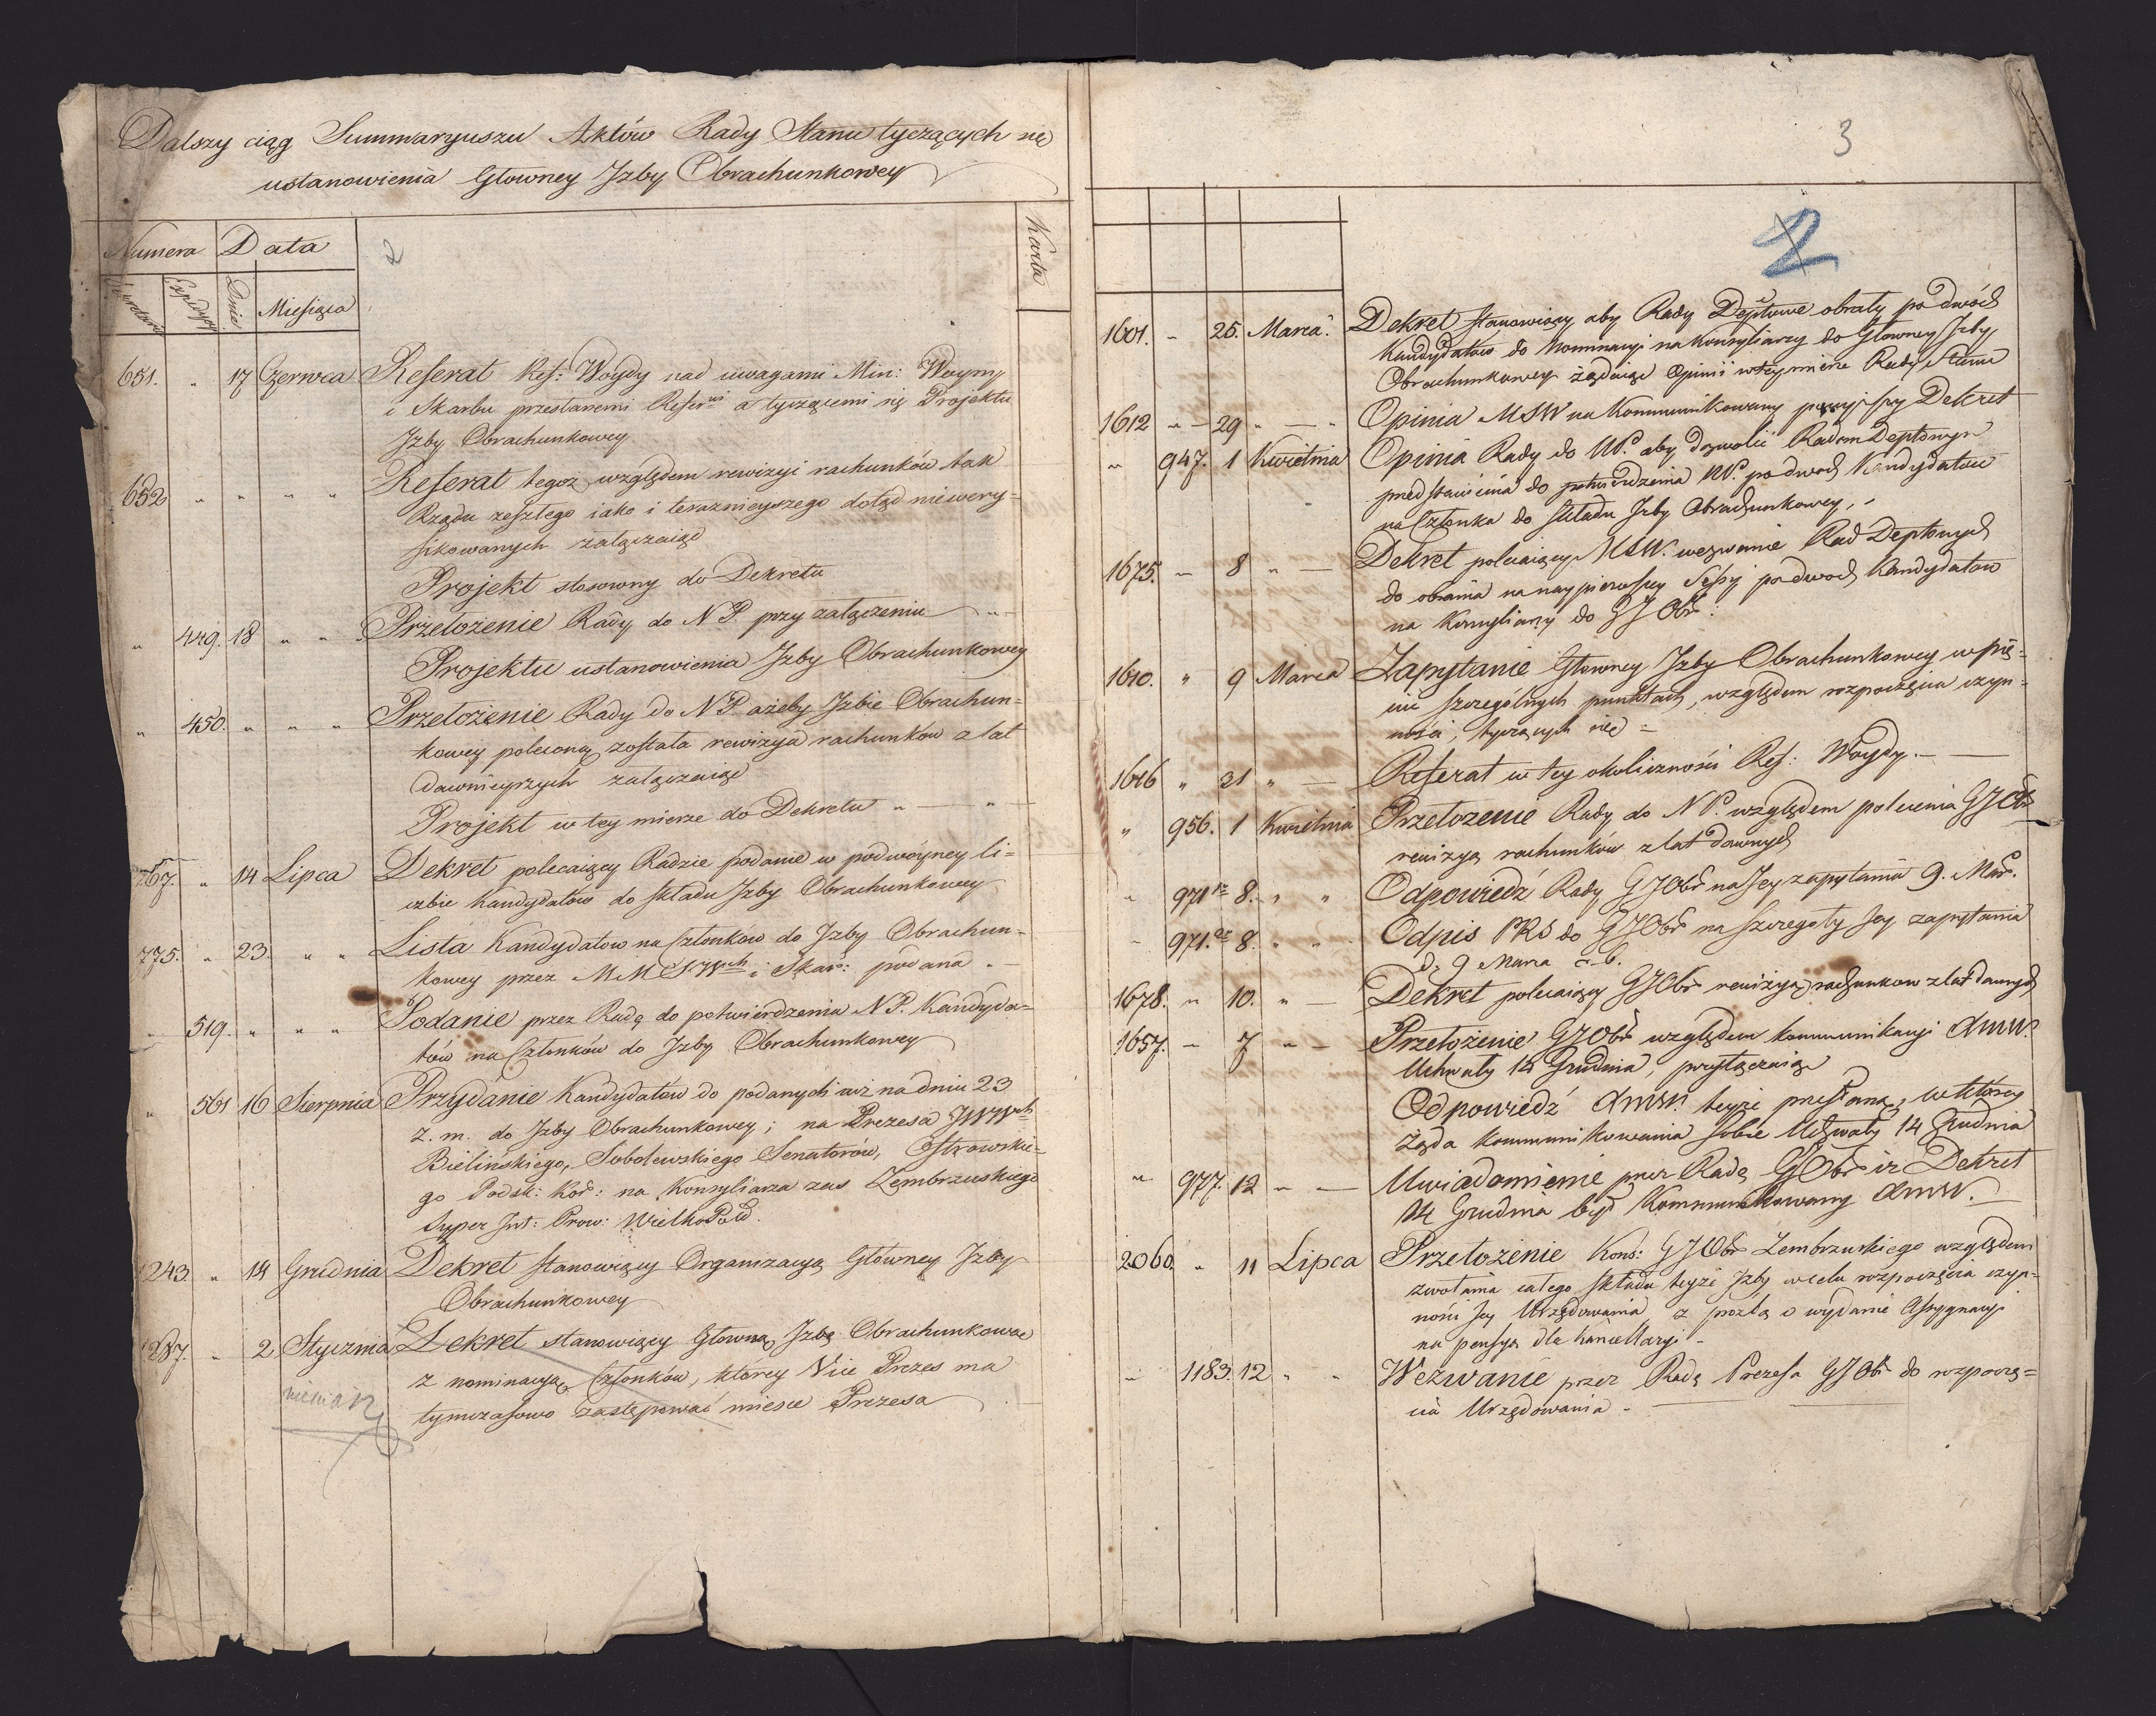 Dalszy ciąg Summaryuszu Aktów Rady Stanu tyczących się
ustanowienia Głowney Jzby Obrachunkowey
Numera Data Karta
Expedycyi Dnia Miesiąca
651. " 17 Czerwca Referat Ref: Woydy nad uwagami Min: Woyny
i Skarbu przesłanemi a tyczącemi się Projektu
Jzby Obrachunkowey
652 " " " " Referat tegoż względem rewizyi rachunków tak
Rządu zeszłego iako i teraznieyszego dotąd niewery=
fikowanych załączaiąc
Projekt stosowny do Dekretu
" 449. 18 " " Przełożenie Rady do N P przy załączeniu
Projektu ustanowienia Jzby Obrachunkowey
" 450. " " " Przełożenie Rady do N P ażeby Jzbie Obrachun=
kowey poleconą została rewizya rachunków z lat
dawnieyszych załączaiąc
Projekt w tey mierze do Dekretu " — "
767. " 14 Lipca Dekret polecaiący Radzie podanie w podwóyney li=
czbie Kandydatów do składu Jzby Obrachunkowey
775. " 23. " " Lista Kandydatow na Członków do Jzby Obrachun=
kowey przez i Skar: podana
" 519. " " " Podanie przez Radę do potwierdzenia N P. Kandyda=
tów na Członków do Jzby Obrachunkowey
" 561 16 Sierpnia Przydanie Kandydatów do podanych iuż na dniu 23
z. m. do Jzby Obrachunkowey; na Prezesa JWWch
Bielińskiego, Sobolewskiego Senatorów, Ostrowskie=
go Podsk: Kor: na Konsyliarza zas Zembrzuskiego
Super Jnt: Prow:
1243. " 14 Grudnia Dekret stanowiący Organizacyą Główney Jzby
Obrachunkowey
1287. " 2 Stycznia Dekret stanowiący Głowną Jzbę Obrachunkową
z nominacyą Członków, którey Vice Prezes ma
tymczasowo zastępować miesce Prezesa
niema
3
2
1601. " 25. Marca. Dekret stanowiący aby Rady obrały po dwóch
Kandydatów do Nominacyi na Konsyliarzy do Głowney Jzby
Obrachunkowey żądaiąc Opinii w tey mierze Rady Stanu
1612 " 29 " — " Opinia MSW na Kommunikowany Dekret
" 947. 1 Kwietnia Opinia Rady do NP. aby dozwolić Radom
przedstawienia do potwierdzenia NP. po dwoch Kandydatow
na Członka do składu Jzby Obrachunkowey.
1675. " 8 " — Dekret polecaiący MSW. wezwanie Rad
do obrania na naypierwszey Sessyi po dwoch Kandydatow
na Konsyliarzy do GJObr:
1610. " 9 Marca Zapytanie Głowney Jzby Obrachunkowey w pię=
ciu szczególnych punktach, względem rozpoczęcia czyn=
nosci, tyczących się
1616 " 21 " — Referat w tey okoliczności Ref: Woydy. —
" 956. 1 Kwietnia Przełozenie Rady do N P. względem polecenia GJObr
rewizyą rachunków z lat dawnych
" 971 8. " " Odpowiedź Rady GJObr na Jey zapytania 9. Mar.
" 971. 8 " " Odpis PRS do GJObr na szczegoły Jey zapytania
d. 9 Marca
1678. " 10. " — Dekret polecaiący GJObr rewizyą rachunkow z lat dawnych
1657. " 7 " — Przełożenie GJObr względem kommunikacyi
Uchwały 14 Grudnia, przyłączaiąc
Odpowiedź teyże przesłaną, w którey
żąda kommunikowania sobie Uchwały 14 Grudnia
" 977. 12 " — Uwiadomienie przez Radę GJObr iż Dekret
14 Grudnia był Kommunikowany
2060. " 11 Lipca Przełożenie Kons: GJObr Zembrzuskiego względem
zwołania całego składu teyże Jzby w celu rozpoczęcia czyn=
nosci Jey Urzędowania z prozbą o wydanie Assygnacyi
na pensyą dla Kancellaryi
" 1183. 12 " " Wezwanie przez Radę Prezesa GJObr do rozpoczę=
cia Urzędowania